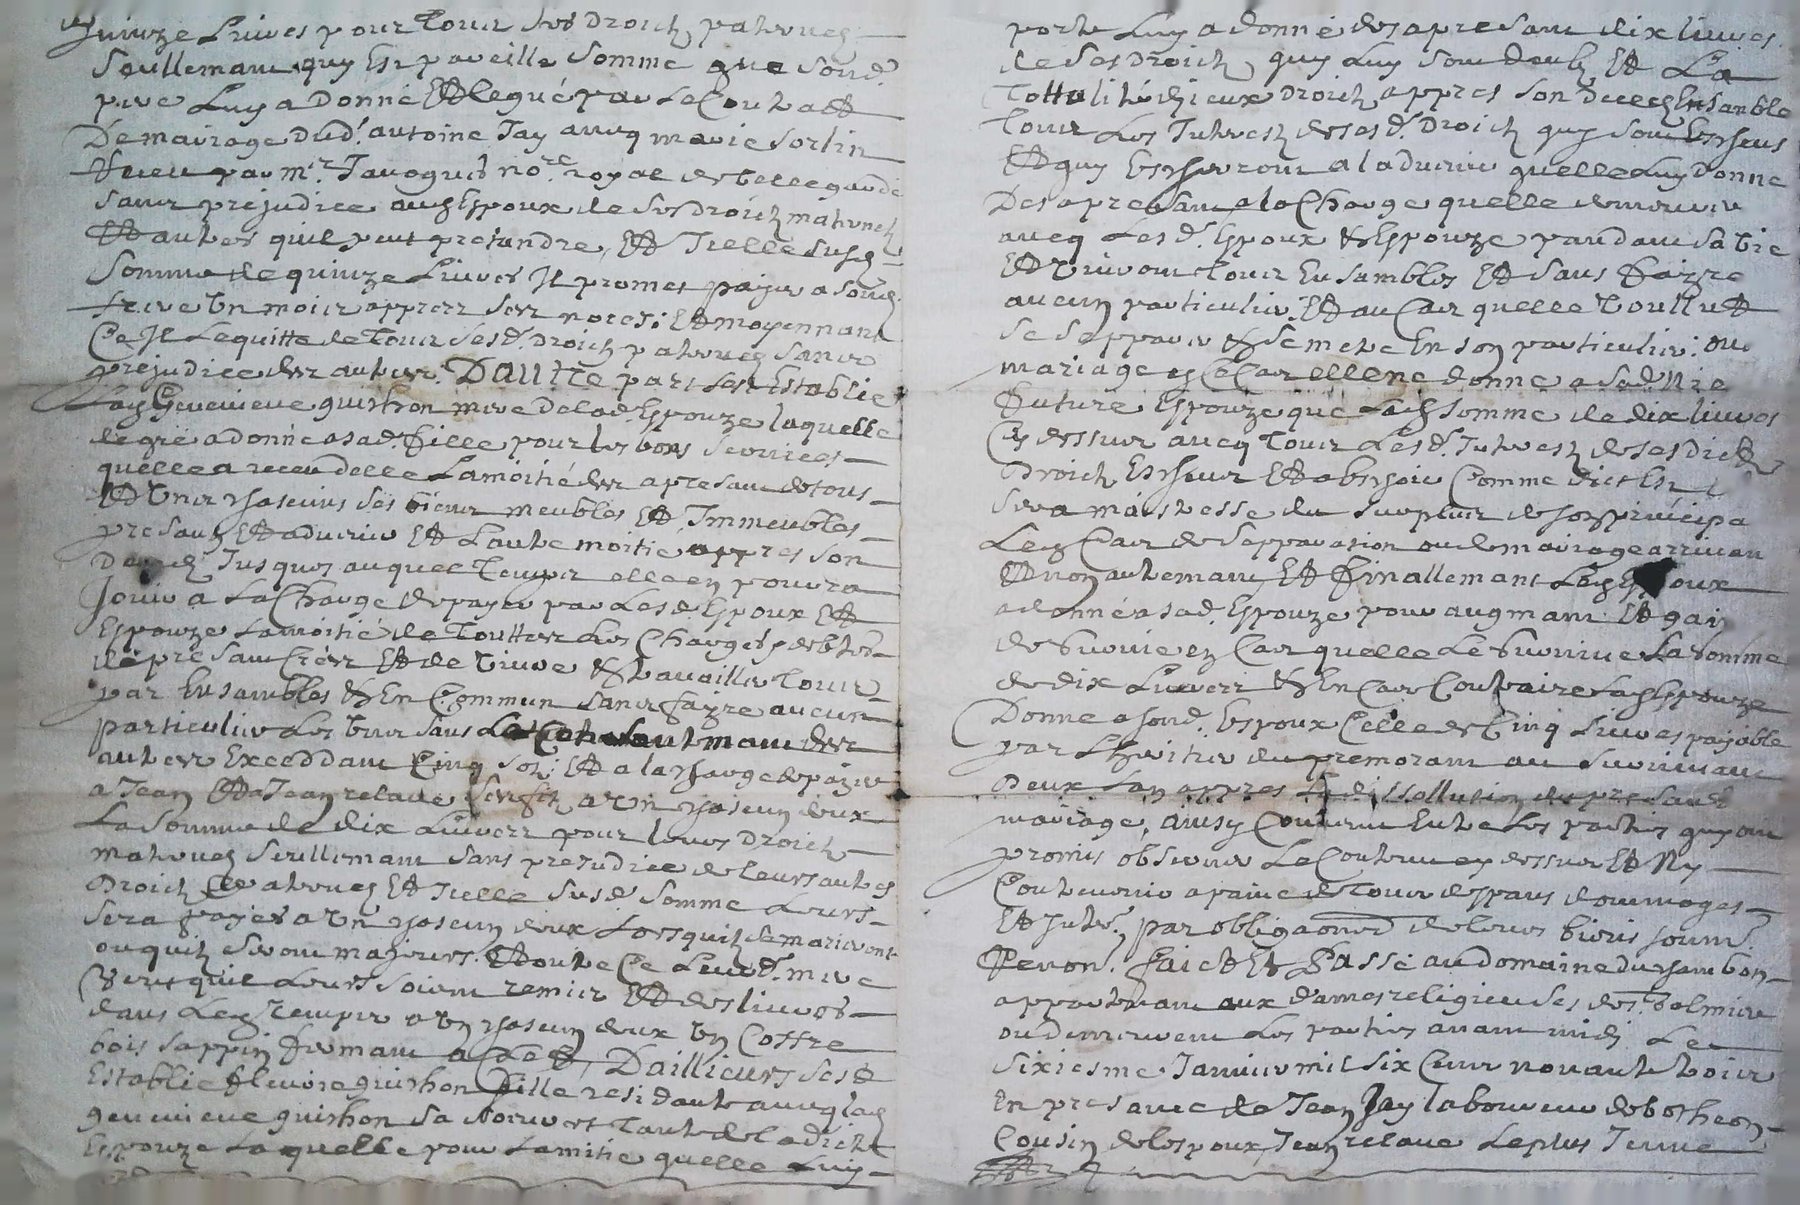 quinze Livres pour tous ses Droictz paternelz
Seullemant quy Est pareille Somme que Sond.
pere Luy a Donné Et legué par Le Contract
De mairage dud. antoine Jay avecq marie Sorlin
Receu par mr. Javogues nore. royal de bellegarde
Sans prejudice auz Espoux de Ses Droictz maternelz
Et autres quil peut pretandre, Et Icelle Susd.
Somme de quinze Livres Il promet payer a Sond.
frere Un mois appres Ses noces; Et moyennant
Ce Il Lequitte de Tous Sesd. Droictz paternelz Sans
prejudice des autres. DAUTTE part Sest Establie
Lad. Genevieve guishon mere delad. Espouze laquelle
de gré a donné a sad. fille pour les bons Services
quelle a receu delle La moitié des apresant de tous
Et Uns chascuns Ses biens meubles Et Immeubles
presans Et advenir Et Lautre moitié appres Son
Decedz Jusques auquel Temps elle en pourra
Jouir a La Charge de payer par Lesd. Espoux Et
Espouze La moitié de Touttes Les Charges debtes
de presant Crées Et de Vivre Et travailler Tous
par Ensambles Et En Commun Sans faire aucun
particulier Les Uns Sans Le Consantmant des
autres Exceddant Cinq Solz; Et a la Charge de paier
a Jean Et a Jean relave a Un chascun deux
La Somme de dix Livres pour leurs Droictz
maternelz Seullemant Sans prejudice de leurs autres
Droictz paternelz Et Icelle Susd. Somme Leurs
Sera payée a Un chascun deux Lorsquilz Se marieront
ou quilz Seront majeurs. Et outre Ce Leurd. mere
Veut quil Leurs Soient remis Et deslivrés
dans Led. Temps a Un chascun deux Un Coffre
bois Sappin fermant a Clef, Dailleurs Sest
Establie fleurie guishon fille residante avecq lad.
genevieve guishon Sa Soeur et Tante de ladicte
Espouze Laquelle pour Lamitié quelle Luy
porte Luy a donné des apresant dix livres
de Ses Droictz quy Luy Sont deubz Et La
Tottalité diceux Droictz appres Son decedz Ensamble
Tous Les Intherestz de Sesd. Droictz quy Sont Escheus
Et quy Escherront a ladvenir quelle Luy Donne
Des apresant a la Charge quelle demeure
avecq Lesd. Espoux Et Espouze pandant Sa Vie
Et Vivront Tous Ensambles Et Sans faire
aucun particulier. Et au Cas quelle Voullut
Se Separer Et Se metre En Son particulier; ou
mariage en Ce Cas elle ne donne a Sad. Niece
future Espouze que Lad. Somme de dix livres
Cy dessus avecq Tous Lesd. Intherestz de Sesdictz
Droictz Escheus Et a Eschoir Comme dict Est
Sera maistresse du Surplus de Son principal
Led. Cas de Separation ou de mairage arrivant
Et non autremant, Et finallemant Led. Espoux
a donné a sad. Espouze pour augmant Et gain
de Survie en Cas quelle Le Survive La Somme
de dix Livres Et En Cas Contraire Lad. Espouze
Donne a Sond. Espoux Celle de Cinq Livres payable
par Lheritier du premorant au Survivant
Deux Lan appres La dissollution du presant
mariage, ainsy Convenu Entre Les parties quy ont
promis observer Le Contenu cy dessus Et Ny
Contrevenir a paine de Tous despans dommages
Et Inthr. par obligaonet de leurs biens soumn.
Renon. faict Et Passé au domaine du chambon
appartenant aux dames religieuses de St. balmier
ou demeurent Les parties avant midi Le
Sixiesme Janvier mil Six Cens novante trois
En presance de Jean Jay laboureur de botheon
Cousin de lespoux, Jean relave Le plus Jeune